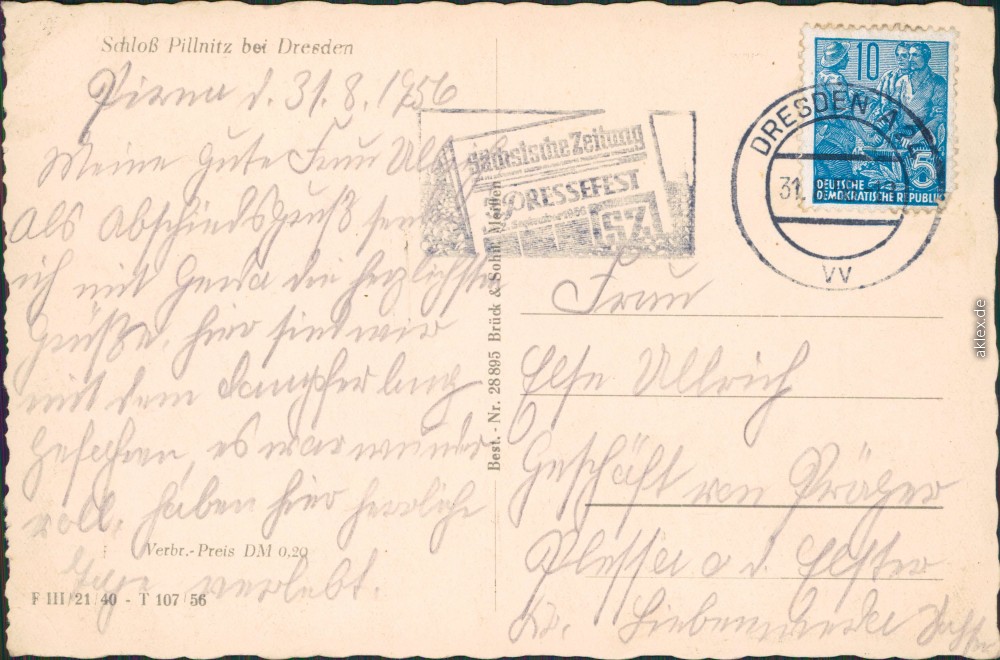 Schloß Pillnitz bei Dresden
Pirna d. 31.8.1956
Meine gute Frau Ull
Als Abschiedsgruß
ich mit Gerda die herzlichsten
Grüße. Hier sind wir
mit dem Dampfer lang
gefahren, es war wunder
voll. haben hier herrliche
Tage verlebt.
Verbr.-Preis DM 0,20
F III/21/40 - T 107/56
Best.-Nr. 28895 Brück & Sohn Meißen
Sächsische Zeitung
PRESSEFEST
SZ
DRESDEN A
31.
VV
10
5
DEUTSCHE
DEMOKRATISCHE REPUBLIK
Frau
Else Ullrich
Geschäft von Präger
Plessa a. d. Elster
Kr. Liebenwerda
aklex.de